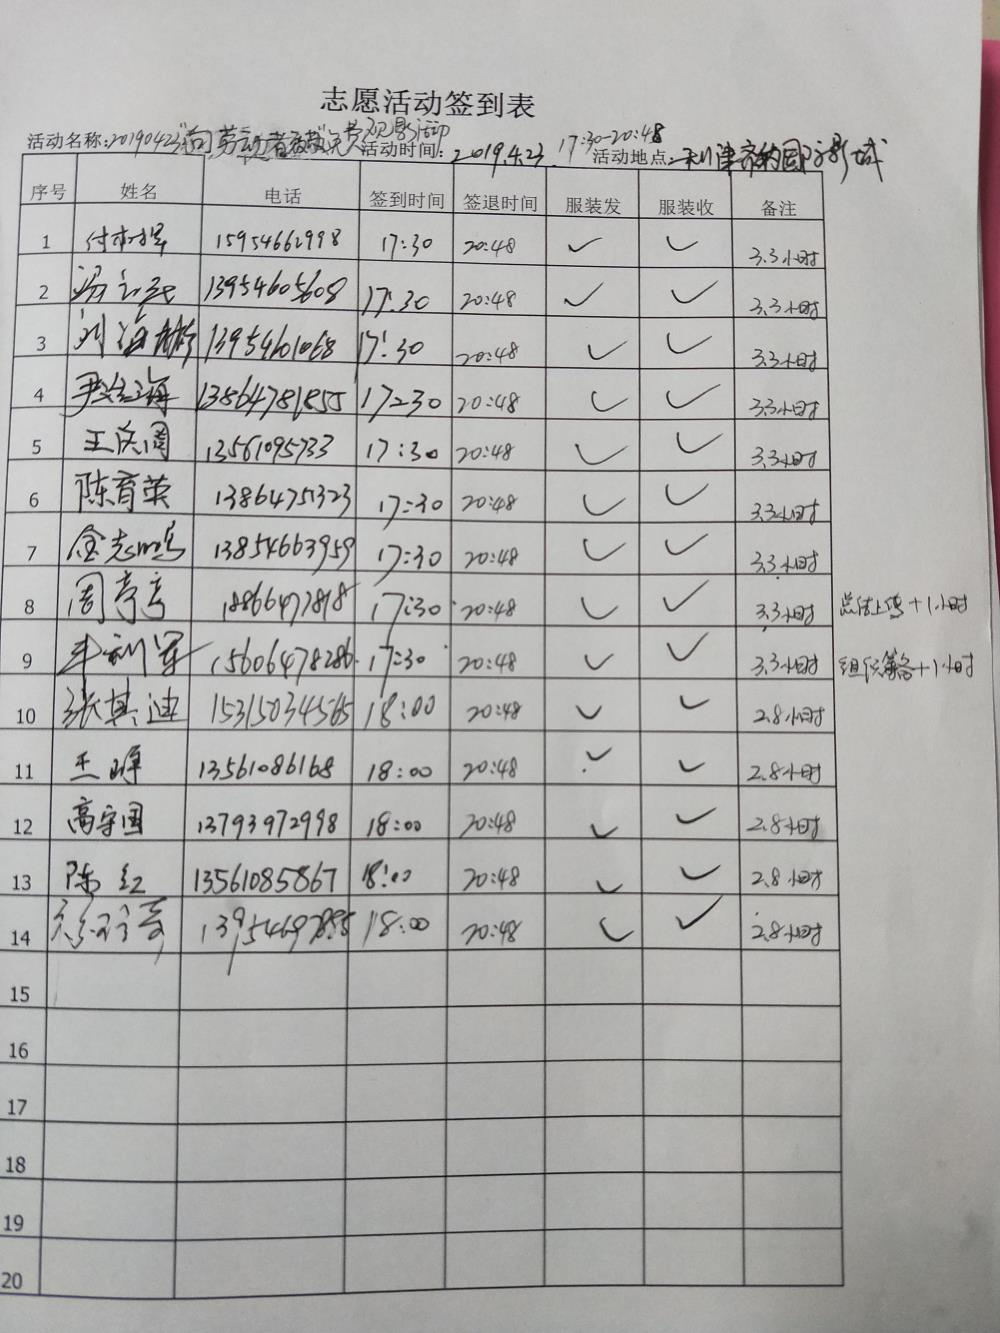 志愿活动签到表
活动名称:20190423"向劳动者致敬"免费观影活动 活动时间: 2019.4.23. 17:30-20:48 活动地点: 利津齐纳国际影城
序号 姓名 电话 签到时间 签退时间 服装发 服装收 备注
1 15954662998 17:30 20:48 ✓ ✓ 3.3小时
2 13954605608 17:30 20:48 ✓ ✓ 3.3小时
3 刘海 13954601068 17:30 20:48 ✓ ✓ 3.3小时
4 尹 海 13864781855 17:30 20:48 ✓ ✓ 3.3小时
5 王 13561095733 17:30 20:48 ✓ ✓ 3.3小时
6 陈育英 13864751323 17:30 20:48 ✓ ✓ 3.3小时
7 金志鸣 13854663959 17:30 20:48 ✓ ✓ 3.3小时
8 周亮亮 18866477818 17:30 20:48 ✓ ✓ 3.3小时 总结上传+1小时
9 利军 15606478286 17:30 20:48 ✓ ✓ 3.3小时 组织筹备+1小时
10 张其迪 15315034565 18:00 20:48 ✓ ✓ 2.8小时
11 王 13561086168 18:00 20:48 ✓ ✓ 2.8小时
12 高守国 13793972998 18:00 20:48 ✓ ✓ 2.8小时
13 陈红 13561085867 18:00 20:48 ✓ ✓ 2.8小时
14 18:00 20:48 ✓ ✓ 2.8小时
15
16
17
18
19
20